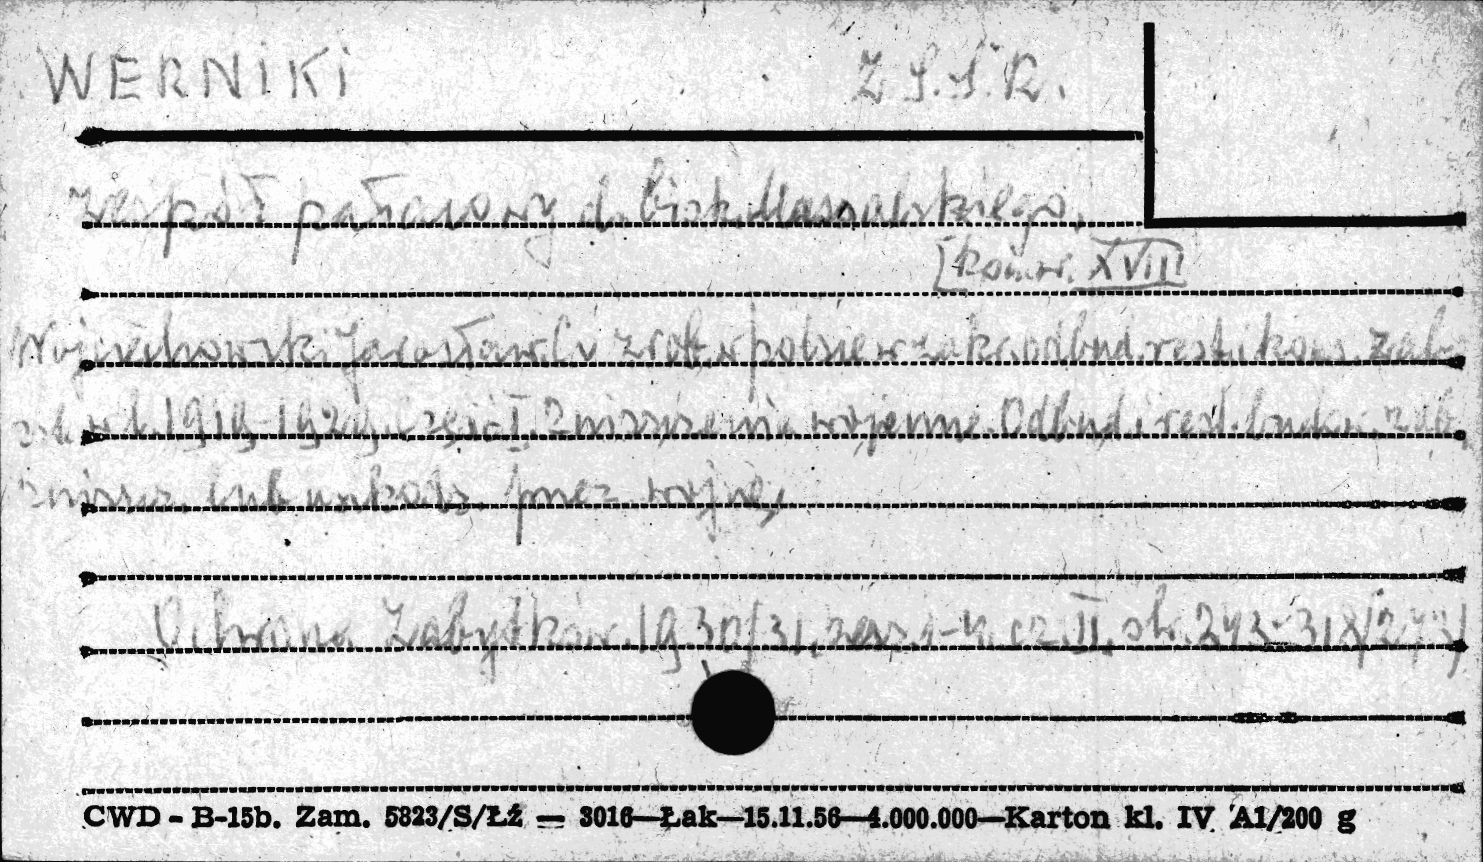 WERNIKI Z.S.S.R.
Zespół pałacowy d. bisk. Massalskiego.
[kon. w. XVIII]
Wojciechowski Jarosław. Co zrob. w polsce w zakr. odbud. rest. i kons. zab.
w l. 1919-1929. część I. Zniszczenie wojenne. Odbud. i rest. budow. zab.
zniszcz. lub uszkodz. przez wojnę,
Ochrona Zabytków. 1930/31, zesz. 1-4. cz. II. str. 243-318/273/
CWD - B-15b. Zam. 5823/S/Łź — 3016—Łak—15.11.56—4.000.000—Karton kl. IV A1/200 g